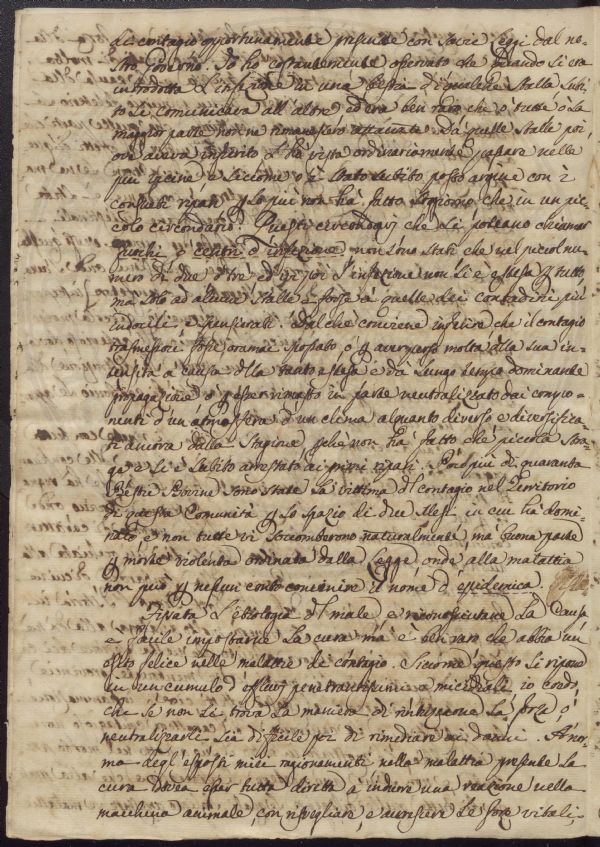 di contagio opportunamente prescritte con Savie Leggi dal no-
stro Governo. Io ho costantemente osservato che quando si era
introdotta l'infezione in una bestia di qualche Stalla subi-
to si comunicava all'altre ed era ben raro che o tutte o la
maggior parte non ne rimanessero attaccate. Da quelle Stalle poi
ove aveva infierito l'hò vista ordinariamente passare nelle
più vicine, e siccome vi è stato subito posto argine con i
consueti ripari p lo più non hà fatto progressi che in un pic-
colo circondario. Questi circondarj che si poteano chiamar
fuochi o centri d'infezione non sono stati che nel picciol nu-
mero di due o tre ed in essi l'infezione non si è estesa p tutto
mà solo ad alcune Stalle e forse à quelle dei Contadini più
indocili, e spensierati. Dal che conviene inferire che il contagio
trasmessoci fosse oramai spossato, o p aver perso molta della sua in-
tensità a causa della tanto estesa e da lungo tempo dominante
propagazione o p esser rimasto in parte neutralizzato dai compo-
nenti d'un atmosfera d'un clima alquanto diverso e diversifica-
ti ancora dalla Stagione pchè non hà fatto che piccola Stra-
ge e si è subito arrestato ai primi ripari. Poco più di quaranta
Bestie Bovine sono state la vittima del contagio nel Territorio
di questa Comunità p lo spazio di due Mesi in cui hà domi-
nato e non tutte vi soccomberono naturalmente, mà buona parte
p morte violenta ordinata dalla Legge onde alla malattia
non può p nessun conto convenire il nome d'epidemica.
Fissata l'etiologia del male e riconosciutane la Causa
è facile impostarne la cura mà è ben raro che abbia un
esito felice nelle malattie di contagio. Siccome questo si ripone
in un cumulo d'effluvj penetrantissimi e micidiali io credo,
che se non si trova la maniera di rintuzzarne la forza, o
neutralizzarli sia difficile poi di rimediare ai danni. A nor-
ma degl'esposti miei ragionamenti nella malattia presente la
cura dovea esser tutta diretta à indurre una reazione nella
macchina animale, con risvegliare, e accrescere le forze vitali,